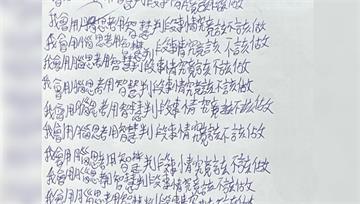 我會用腦思考用智慧判段事情究竟該不該做
我會用腦思考用智慧判段事情究竟該不該做
我會用腦思考用智慧判段事情究竟該不該做
我會用腦思考用智慧判段事情究竟該不該做
我會用腦思考用智慧判段事情究竟該不該做
我會用腦思考用智慧判段事情究竟該不該做
我會用腦思考用智慧判段事情究竟該不該做
我會用腦思考用智慧判段事情究竟該不該做
我會用腦思考用智慧判段事情究竟該不該做